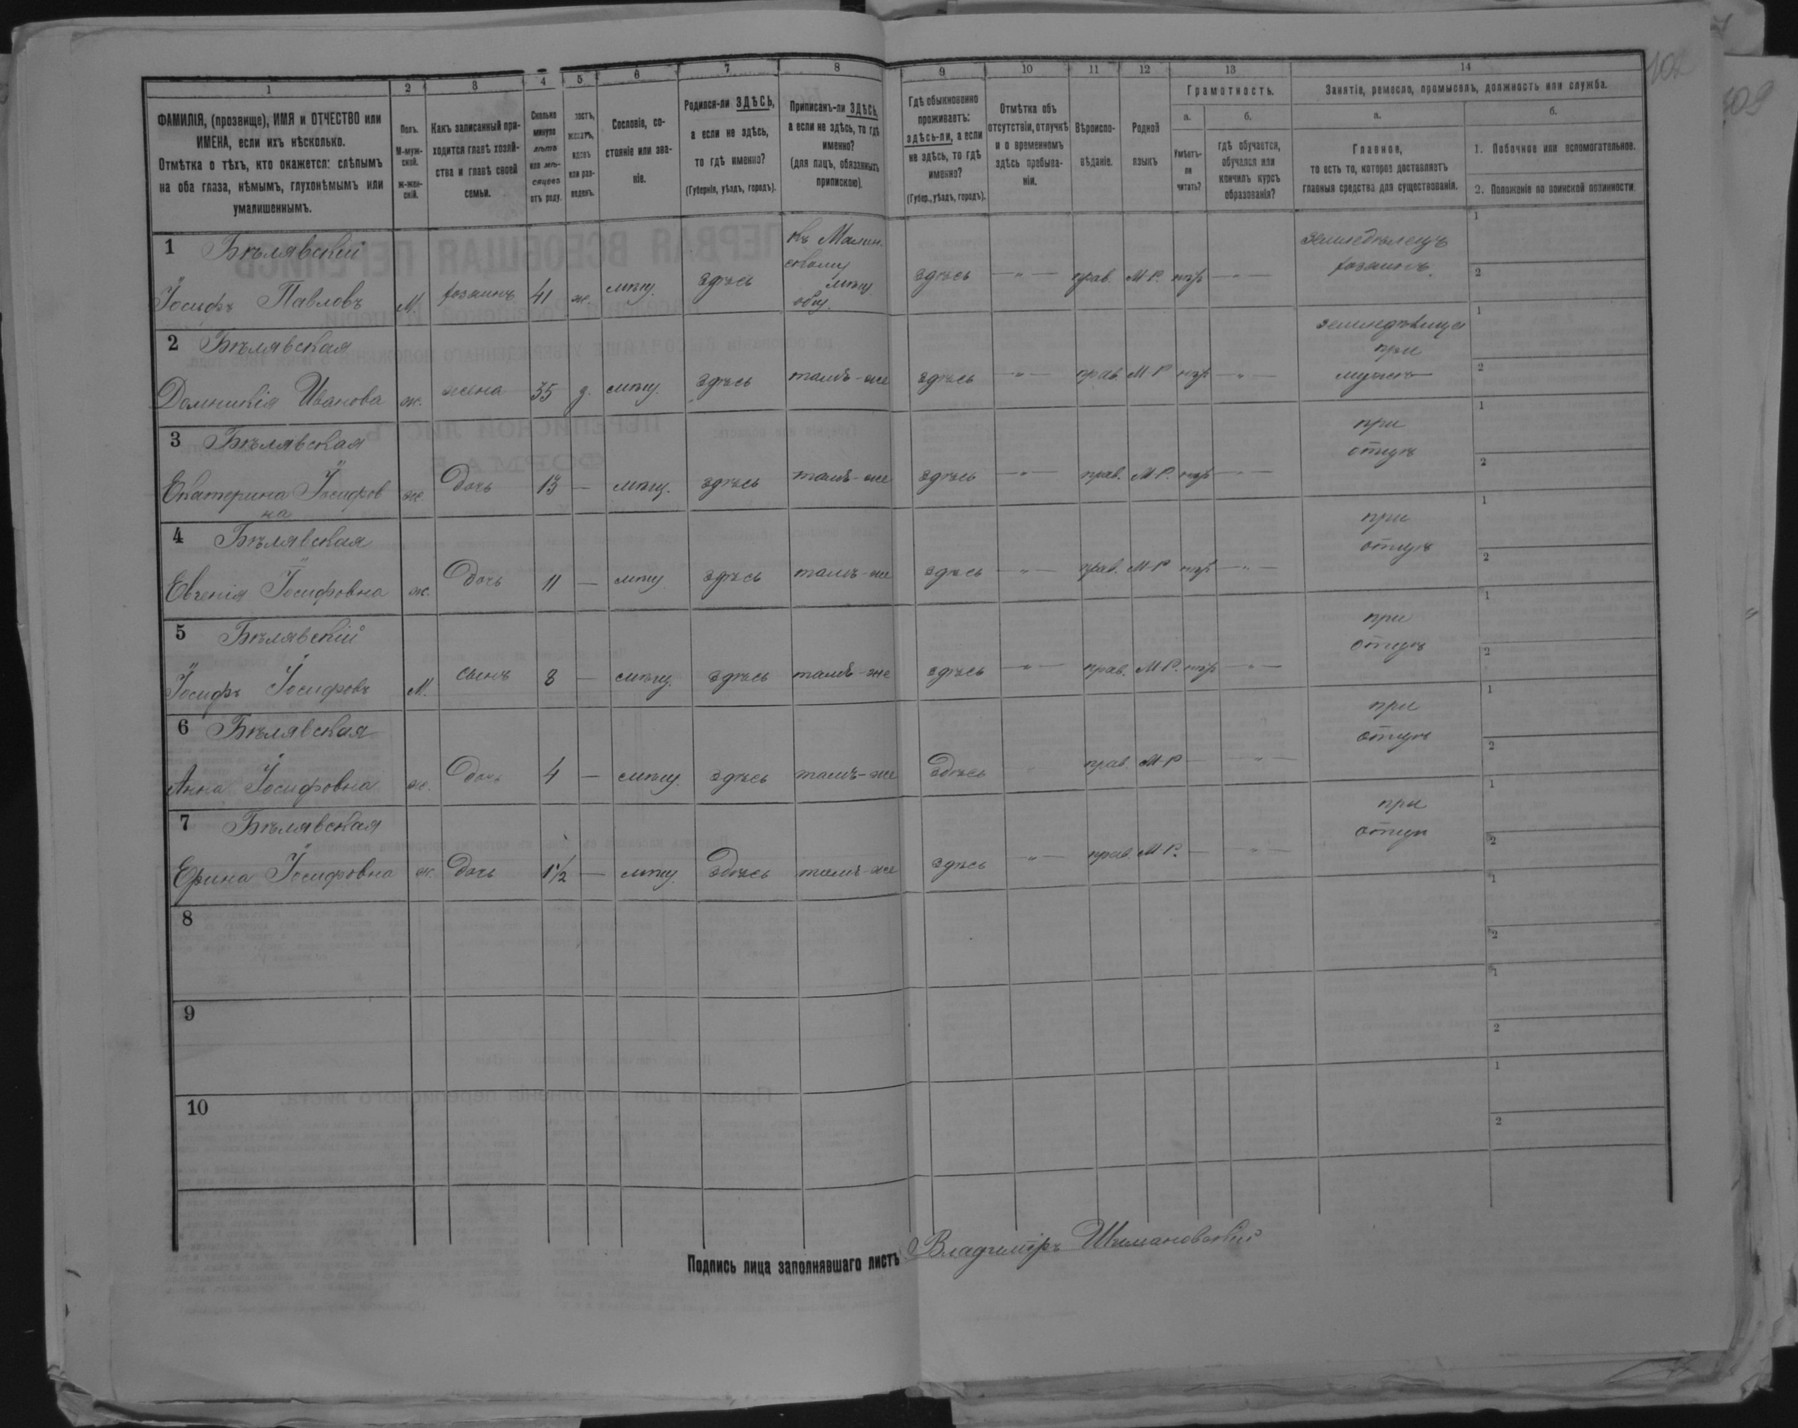 1 2 3 4 5 6 7 8 9 10 11 12 13 14
ФАМИЛІЯ, (прозвище), ИМЯ и ОТЧЕСТВО или
ИМЕНА, если ихъ нѣсколько.
Отмѣтка о тѣхъ, кто окажется: слѣпымъ
на оба глаза, нѣмымъ, глухонѣмымъ или
умалишеннымъ.
Полъ.
М-муж-
ской.
ж-жен-
скій.
Какъ записанный при-
ходится главѣ хозяй-
ства и главѣ своей
семьи.
Сколько
минуло
лѣтъ
или мѣ-
сяцевъ
отъ роду.
холостъ,
женатъ,
вдовъ
или раз-
веденъ.
Сословіе, со-
стояніе или зва-
ніе.
Родился-ли ЗДѢСЬ,
а если не здѣсь,
то гдѣ именно?
(Губернія, уѣздъ, городъ).
Приписанъ-ли ЗДѢСЬ,
а если не здѣсь, то гдѣ
именно?
(для лицъ, обязанныхъ
припискою).
Гдѣ обыкновенно
проживаетъ:
здѣсь-ли, а если
не здѣсь, то гдѣ
именно?
(Губер., уѣздъ, городъ).
Отмѣтка объ
отсутствіи, отлучкѣ
и о временномъ
здѣсь пребыва-
ніи.
Вѣроиспо-
вѣданіе.
Родной
языкъ
Грамотность.
а.
Умѣетъ-
ли
читать?
б.
гдѣ обучается,
обучался или
кончилъ курсъ
образованія?
Занятіе, ремесло, промыселъ, должность или служба.
а.
Главное,
то есть то, которое доставляетъ
главныя средства для существованія.
б.
1. Побочное или вспомогательное.
2. Положеніе по воинской повинности.
1 Бѣлявскій
Іосифъ Павловъ М. хозяинъ 41 ж. мѣщ. здѣсь
мѣщ.
здѣсь — " — прав. М.Р. нѣтъ — " —
земледѣлецъ
хозяинъ.
1
2
2 Бѣлявская
Домникія Иванова ж. жена 35 з. мѣщ. здѣсь тамъ-же здѣсь — " — прав. М.Р. нѣтъ — " —
при
мужѣ
1
2
3 Бѣлявская
Екатерина Іосифов
на
ж. дочь 13 — мѣщ. здѣсь тамъ-же здѣсь — " — прав. М.Р. нѣтъ — " —
при
отцѣ
1
2
4 Бѣлявская
Евгенія Іосифовна ж. дочь 11 — мѣщ. здѣсь тамъ-же здѣсь — " — прав. М.Р. нѣтъ — " —
при
отцѣ
1
2
5 Бѣлявскій
Іосифъ Іосифовъ М. сынъ 8 — мѣщ. здѣсь тамъ-же здѣсь — " — прав. М.Р. нѣтъ — " —
при
отцѣ
1
2
6 Бѣлявская
Анна Іосифовна ж. дочь 4 — мѣщ. здѣсь тамъ-же здѣсь прав. М.Р. — — " —
при
отцѣ
1
2
7 Бѣлявская
Ерина Іосифовна ж. дочь 1 1/2 — мѣщ. здѣсь тамъ-же здѣсь — " — прав. М.Р. — — " —
при
отцѣ
1
2
8
1
2
9
1
2
10
1
2
Подпись лица заполнявшаго листъ Владиміръ Шимановскій